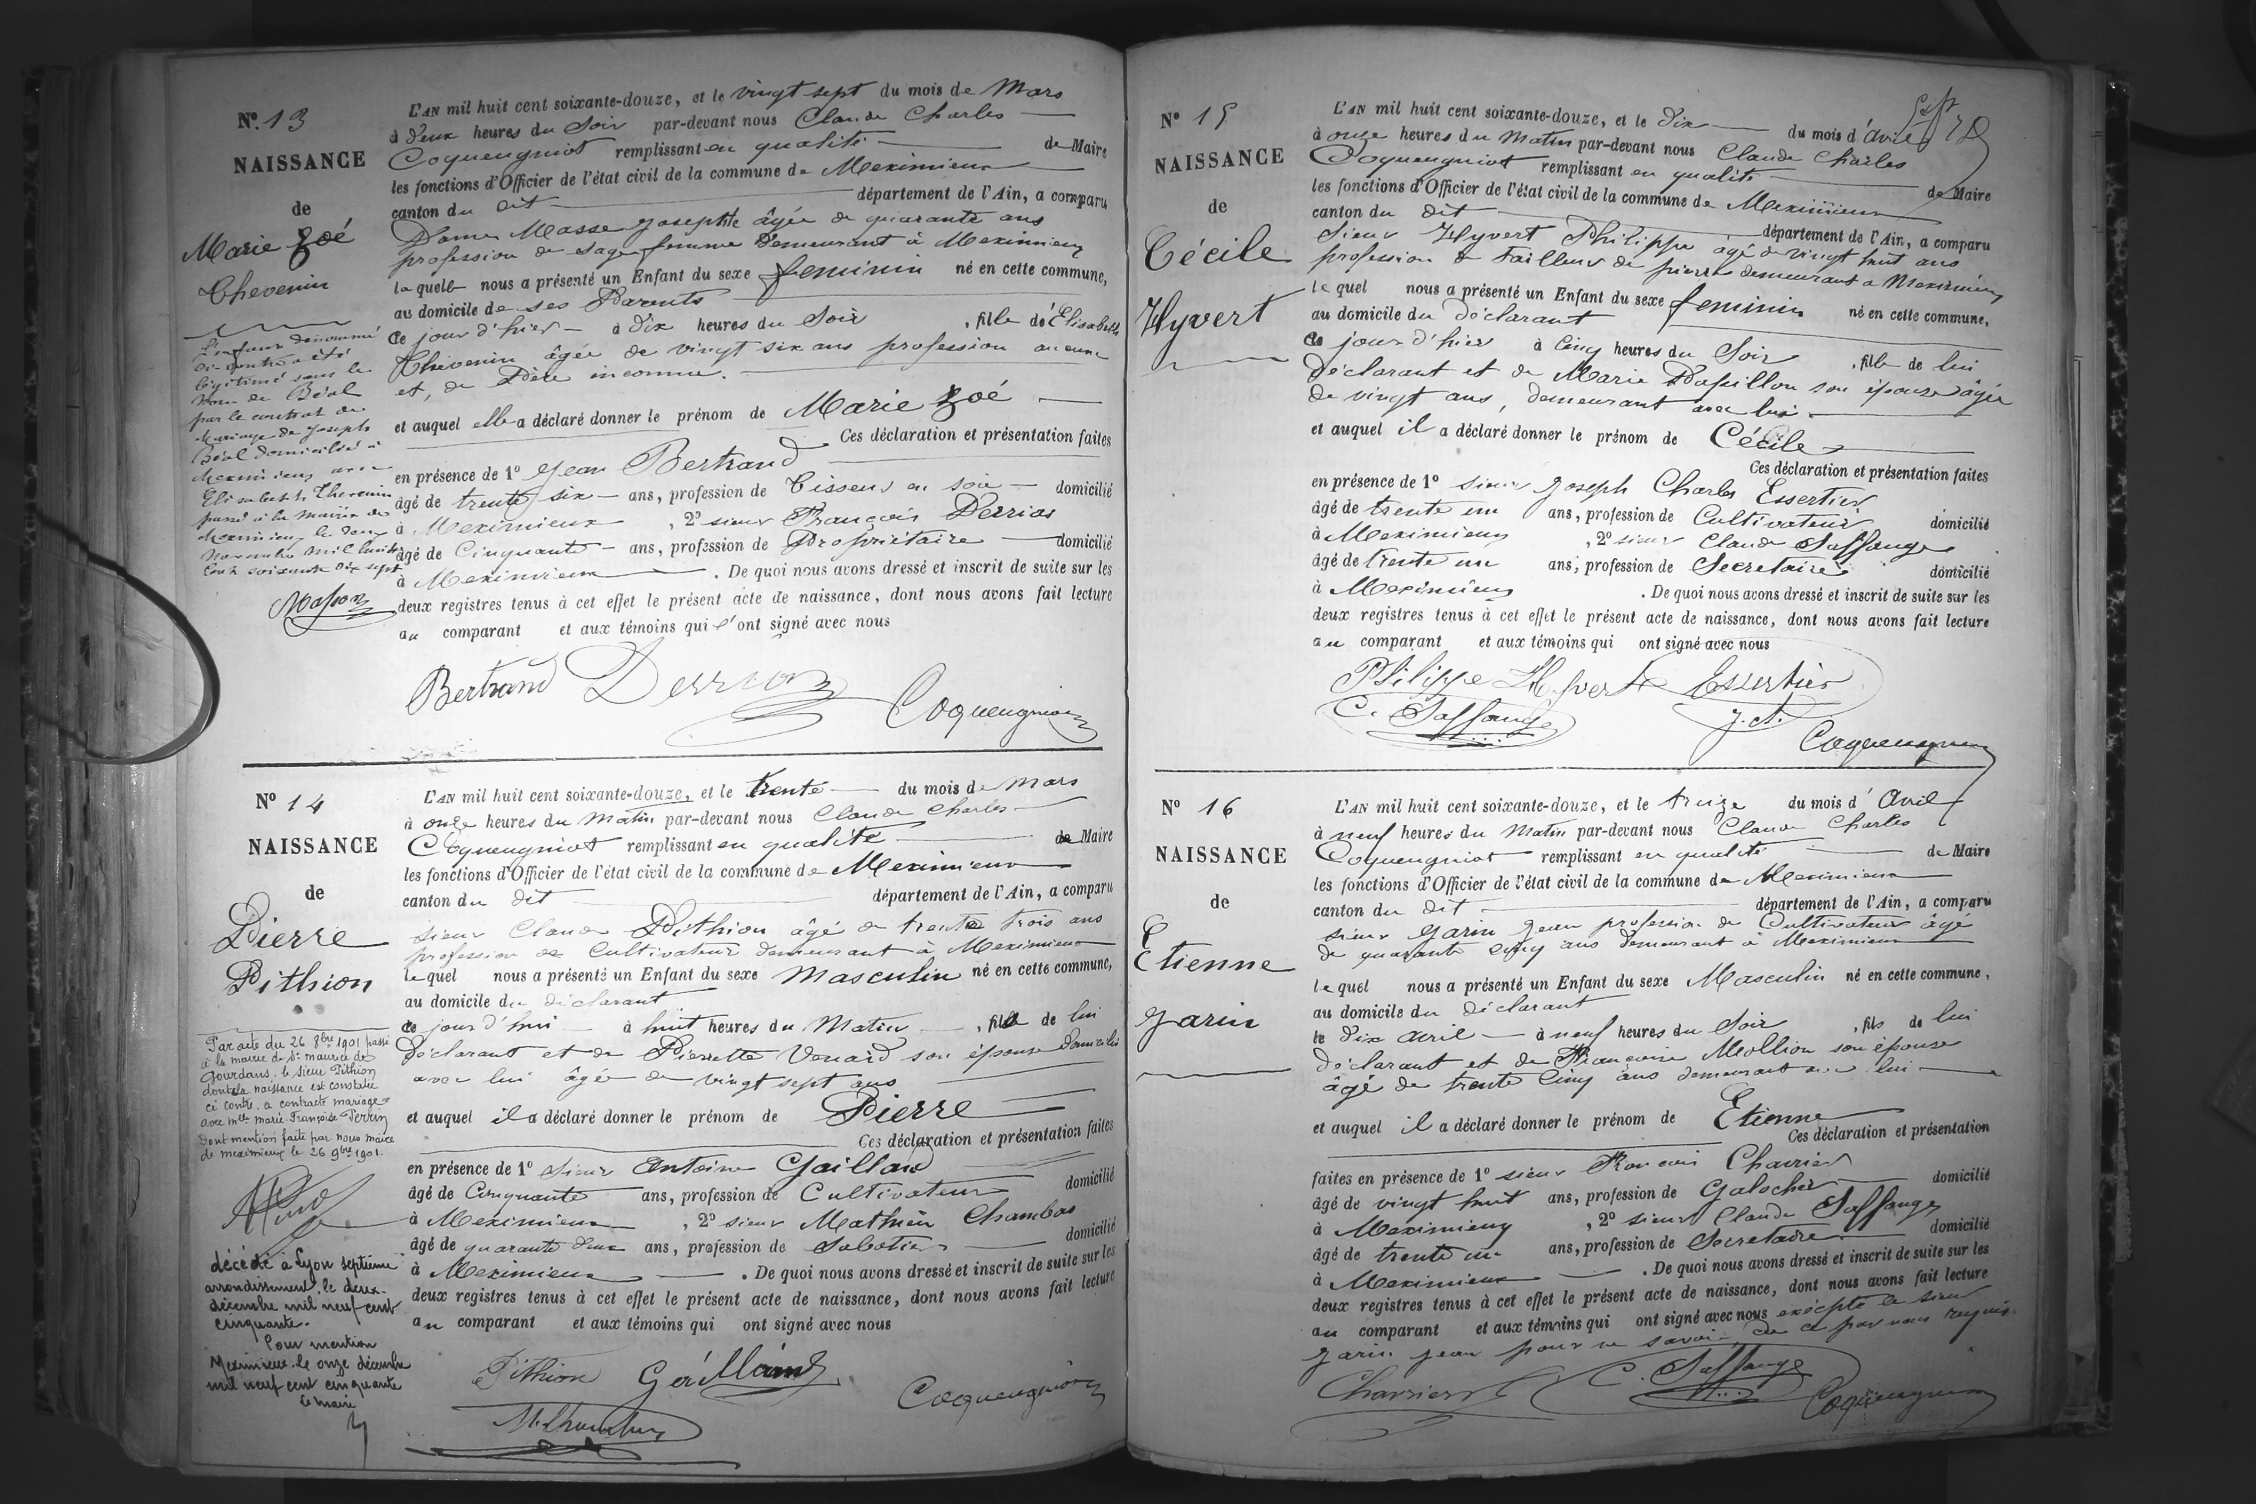 N° 13
NAISSANCE
de
Marie Zoé
Chevenin
L'enfant dénommé
ci-contre a été
légitimé sous le
nom de Béal
par le contrat de
mariage de Joseph
Béal domicilié à
Meximieux avec
Elisabeth Thevenin
passé à la mairie de
Meximieux le
Novembre mil huit
cent soixante dix sept
Masson
L'AN mil huit cent soixante-douze, et le vingt sept du mois de Mars
à deux heures du Soir par-devant nous Claude Charles
Coquengniot remplissant en qualité de Maire
les fonctions d'Officier de l'état civil de la commune de Meximieux
canton du dit département de l'Ain, a comparu
Dame Masse Josephte âgée de quarante ans
profession de sage femme demeurant à Meximieux
laquelle nous a présenté un Enfant du sexe feminin né en cette commune,
au domicile de ses Parents
ce jour d'hier à dix heures du Soir , fille de Elisabeth
Thevenin âgée de vingt six ans profession aucune
et, de Père inconnu.
et auquel elle a déclaré donner le prénom de Marie Zoé
Ces déclaration et présentation faites
en présence de 1° Jean Bertrand
âgé de trente six ans, profession de Tisseur en soie domicilié
à Meximieux , 2° sieur François Derrias
âgé de Cinquante ans, profession de Propriétaire domicilié
à Meximieux . De quoi nous avons dressé et inscrit de suite sur les
deux registres tenus à cet effet le présent acte de naissance, dont nous avons fait lecture
au comparant et aux témoins qui l'ont signé avec nous
Bertrand Coquengniot
N° 14
NAISSANCE
de
Pierre
Pithion
Par acte du 26 8bre 1901 passé
à la mairie de St maurice de
Gourdans. le sieur Pithion
dont la naissance est constatée
ci contre. a contracté mariage
avec melle marie Françoise Perrin
Dont mention faite par nous maire
de meximieux le 26 9bre 1901.
décédé à Lyon septième
arrondissement, le deux
décembre mil neuf cent
cinquante.
Pour mention
Meximieux le onze décembre
mil neuf cent cinquante
Le Maire
L'AN mil huit cent soixante-douze, et le trente du mois de Mars
à onze heures du Matin par-devant nous Claude Charles
Coquengniot remplissant en qualité de Maire
les fonctions d'Officier de l'état civil de la commune de Meximieux
canton du dit département de l'Ain, a comparu
sieur Claude Pithion âgé de trente trois ans
profession de Cultivateur demeurant à Meximieux
lequel nous a présenté un Enfant du sexe Masculin né en cette commune,
au domicile du déclarant
ce jour d'hui à huit heures du Matin , fils de lui
déclarant et de Pierrette Venard son épouse domiciliée
avec lui âgée de vingt sept ans
et auquel il a déclaré donner le prénom de Pierre
Ces déclaration et présentation faites
en présence de 1° sieur Antoine Gaillard
âgé de Cinquante ans, profession de Cultivateur domicilié
à Meximieux , 2° sieur Mathieu Chambas
âgé de quarante deux ans, profession de Sabotier domicilié
à Meximieux . De quoi nous avons dressé et inscrit de suite sur les
deux registres tenus à cet effet le présent acte de naissance, dont nous avons fait lecture
au comparant et aux témoins qui ont signé avec nous
Pithion
Coquengniot
N° 15
NAISSANCE
de
Cécile
Hyvert
L'AN mil huit cent soixante-douze, et le Dix du mois d'Avril
à onze heures du Matin par-devant nous Claude Charles
Coquengniot remplissant en qualité de Maire
les fonctions d'Officier de l'état civil de la commune de Meximieux
canton du dit département de l'Ain, a comparu
sieur Hyvert Philippe âgé de vingt huit ans
profession de tailleur de pierres demeurant à Meximieux
lequel nous a présenté un Enfant du sexe feminin né en cette commune,
au domicile du déclarant
ce jour d'hier à Cinq heures du Soir , fille de lui
déclarant et de Marie Papillon son épouse âgée
de vingt ans, demeurant avec lui
et auquel il a déclaré donner le prénom de Cécile
Ces déclaration et présentation faites
en présence de 1° sieur Joseph Charles Essertier
âgé de trente un ans, profession de Cultivateur domicilié
à Meximieux , 2° sieur Claude Saffange
âgé de trente un ans, profession de Secretaire domicilié
à Meximieux . De quoi nous avons dressé et inscrit de suite sur les
deux registres tenus à cet effet le présent acte de naissance, dont nous avons fait lecture
au comparant et aux témoins qui ont signé avec nous
Philippe Hyvert Essertier
C. Saffange
Coquengniot
N° 16
NAISSANCE
de
Etienne
Jarin
L'AN mil huit cent soixante-douze, et le treize du mois d'Avril
à neuf heures du Matin par-devant nous Claude Charles
Coquengniot remplissant en qualité de Maire
les fonctions d'Officier de l'état civil de la commune de Meximieux
canton du dit département de l'Ain, a comparu
sieur Jarin Jean profession de Cultivateur âgé
de quarante cinq ans demeurant à Meximieux
lequel nous a présenté un Enfant du sexe Masculin né en cette commune,
au domicile du déclarant
le dix avril à neuf heures du Soir , fils de lui
déclarant et de Françoise Mollion son épouse
âgé de trente Cinq ans demeurant avec lui
et auquel il a déclaré donner le prénom de Etienne
Ces déclaration et présentation
faites en présence de 1° sieur François Charrier
âgé de vingt huit ans, profession de Galocher domicilié
à Meximieux , 2° sieur Claude Saffange
âgé de trente un ans, profession de Secretaire domicilié
à Meximieux . De quoi nous avons dressé et inscrit de suite sur les
deux registres tenus à cet effet le présent acte de naissance, dont nous avons fait lecture
au comparant et aux témoins qui ont signé avec nous excepté le sieur
Jarin Jean pour ne savoir, de ce par nous requis.
Charrier C. Saffange
Coquengniot